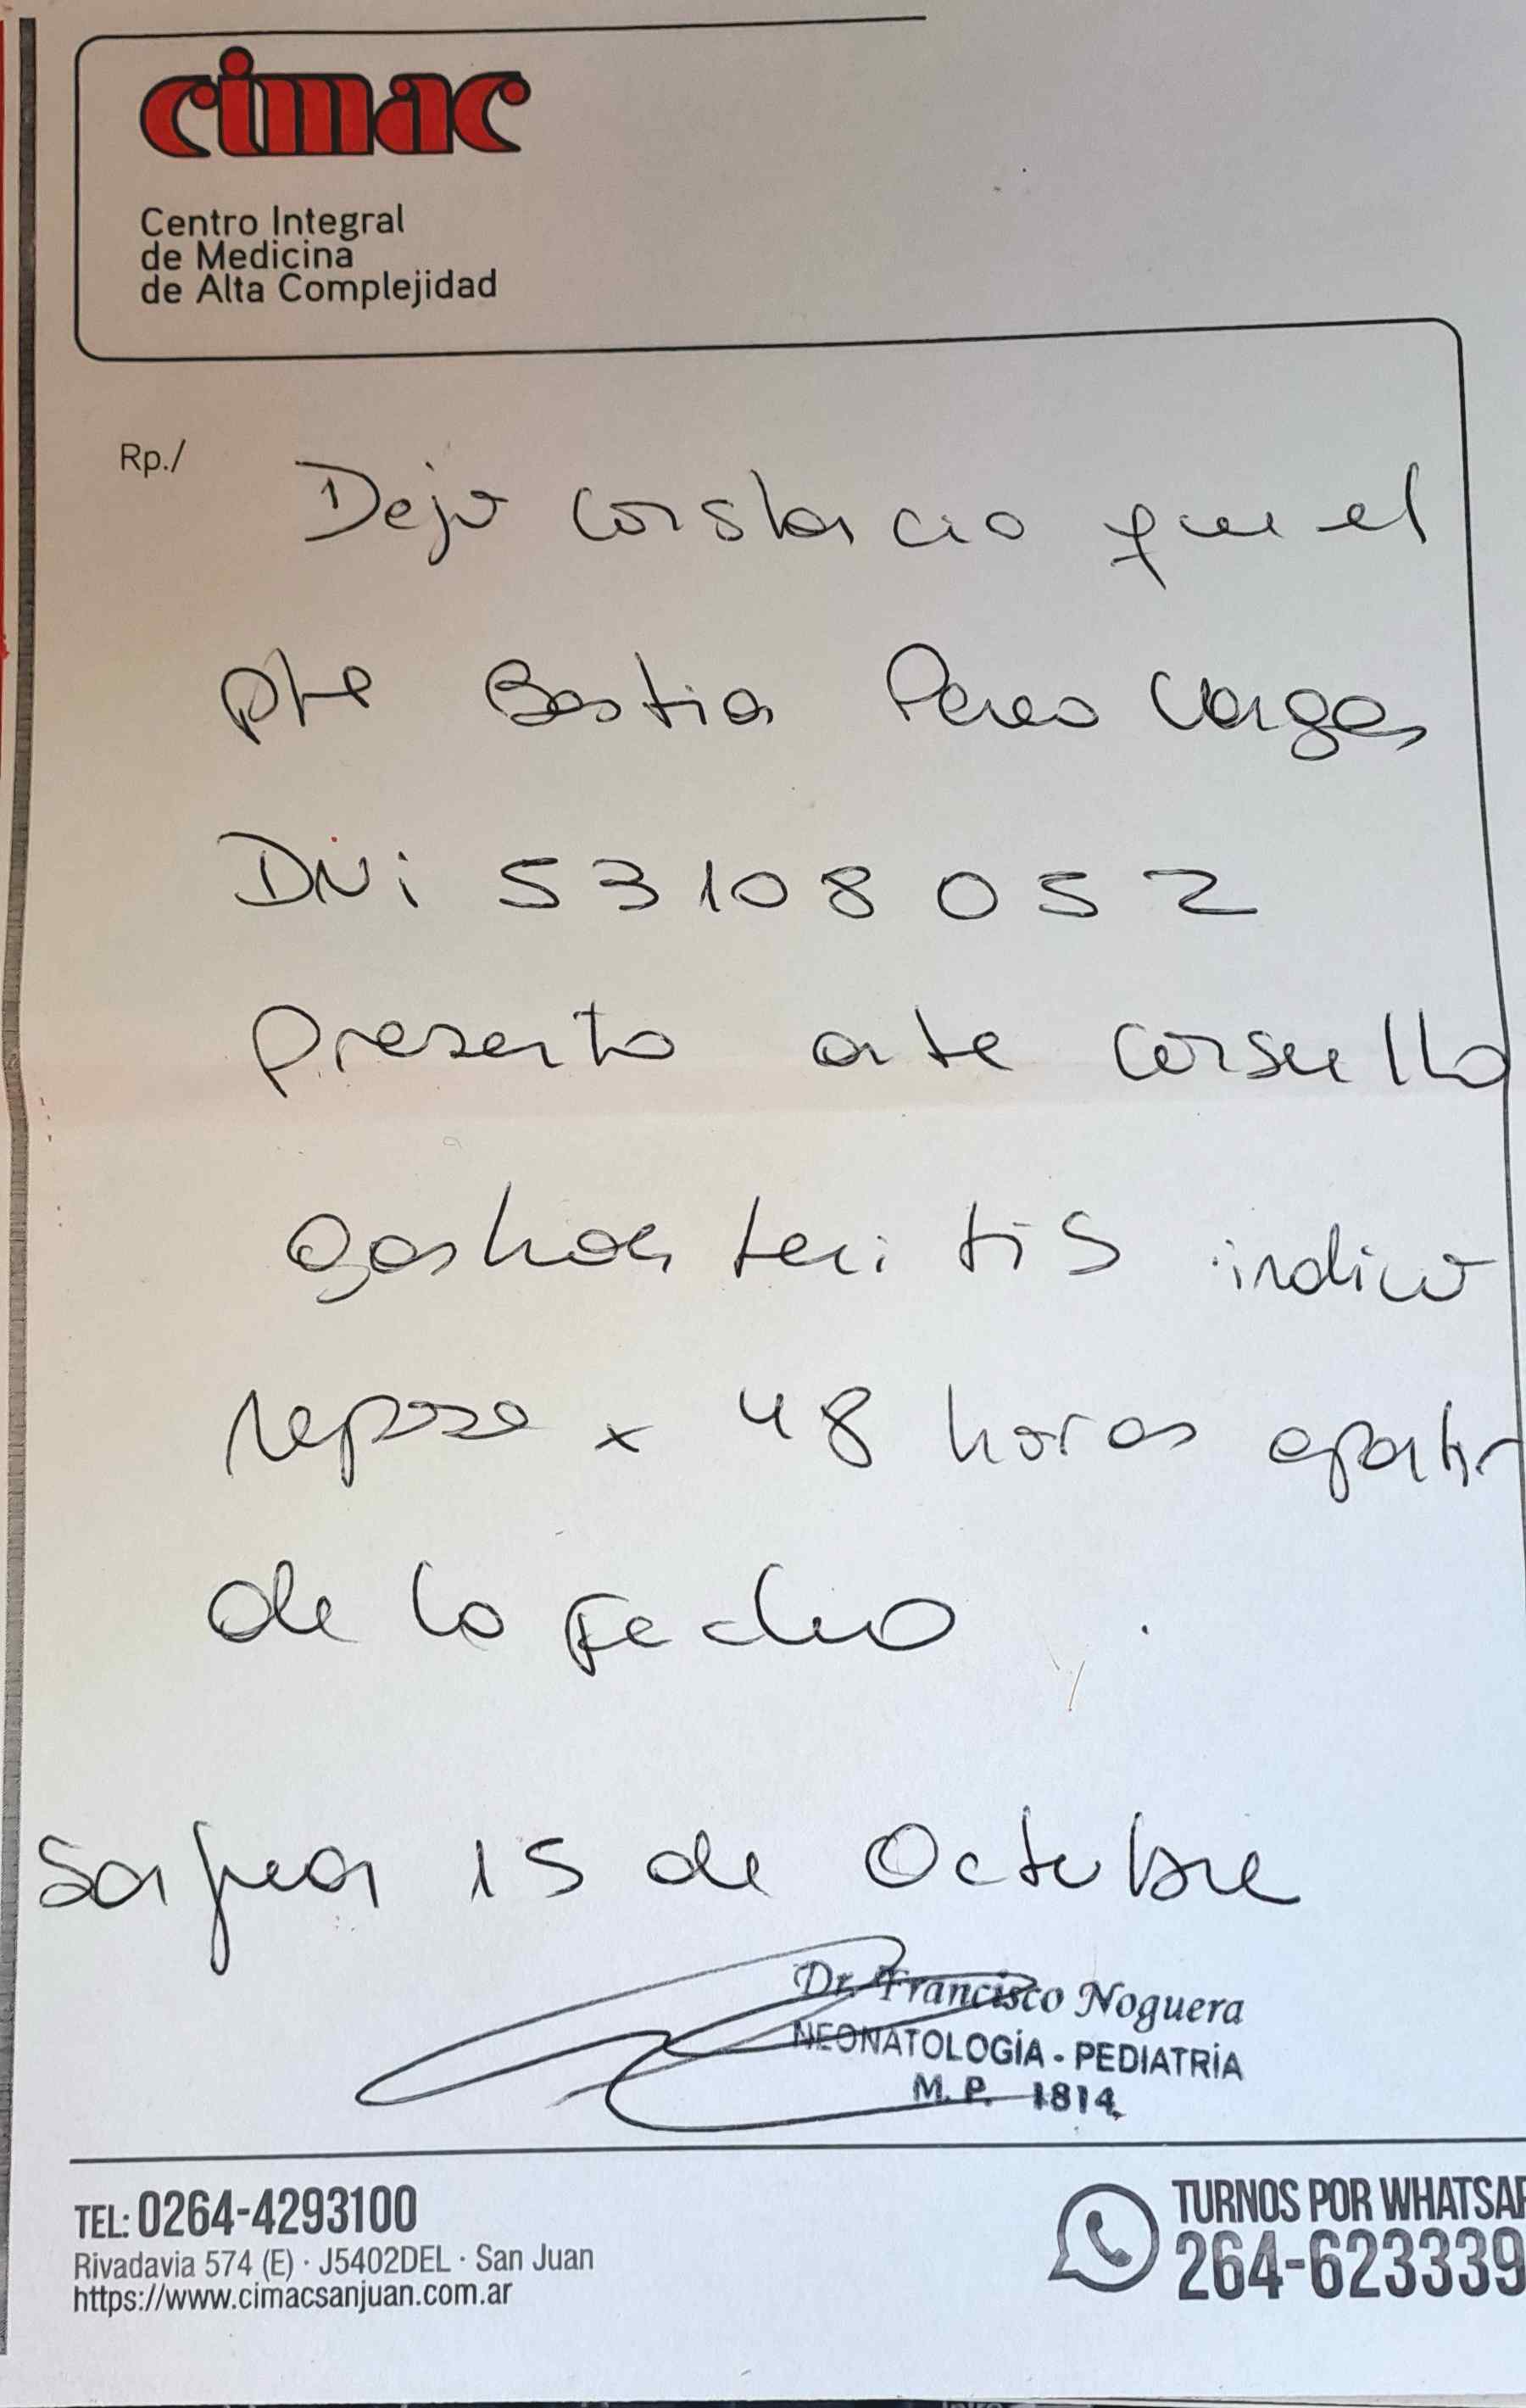 cimac
Centro Integral
de Medicina
de Alta Complejidad
Rp./
Dejo constancia que el
pte Bastian Perea Vargas
DNi 53108052
presento ante consulta
gastroenteritis indico
reposo x 48 horas apartir
de la fecha.
San Juan 15 de Octubre
Dr. Francisco Noguera
NEONATOLOGÍA - PEDIATRÍA
M. P. 1814
TEL: 0264-4293100
Rivadavia 574 (E) · J5402DEL · San Juan
https://www.cimacsanjuan.com.ar
TURNOS POR WHATSAP
264-623339